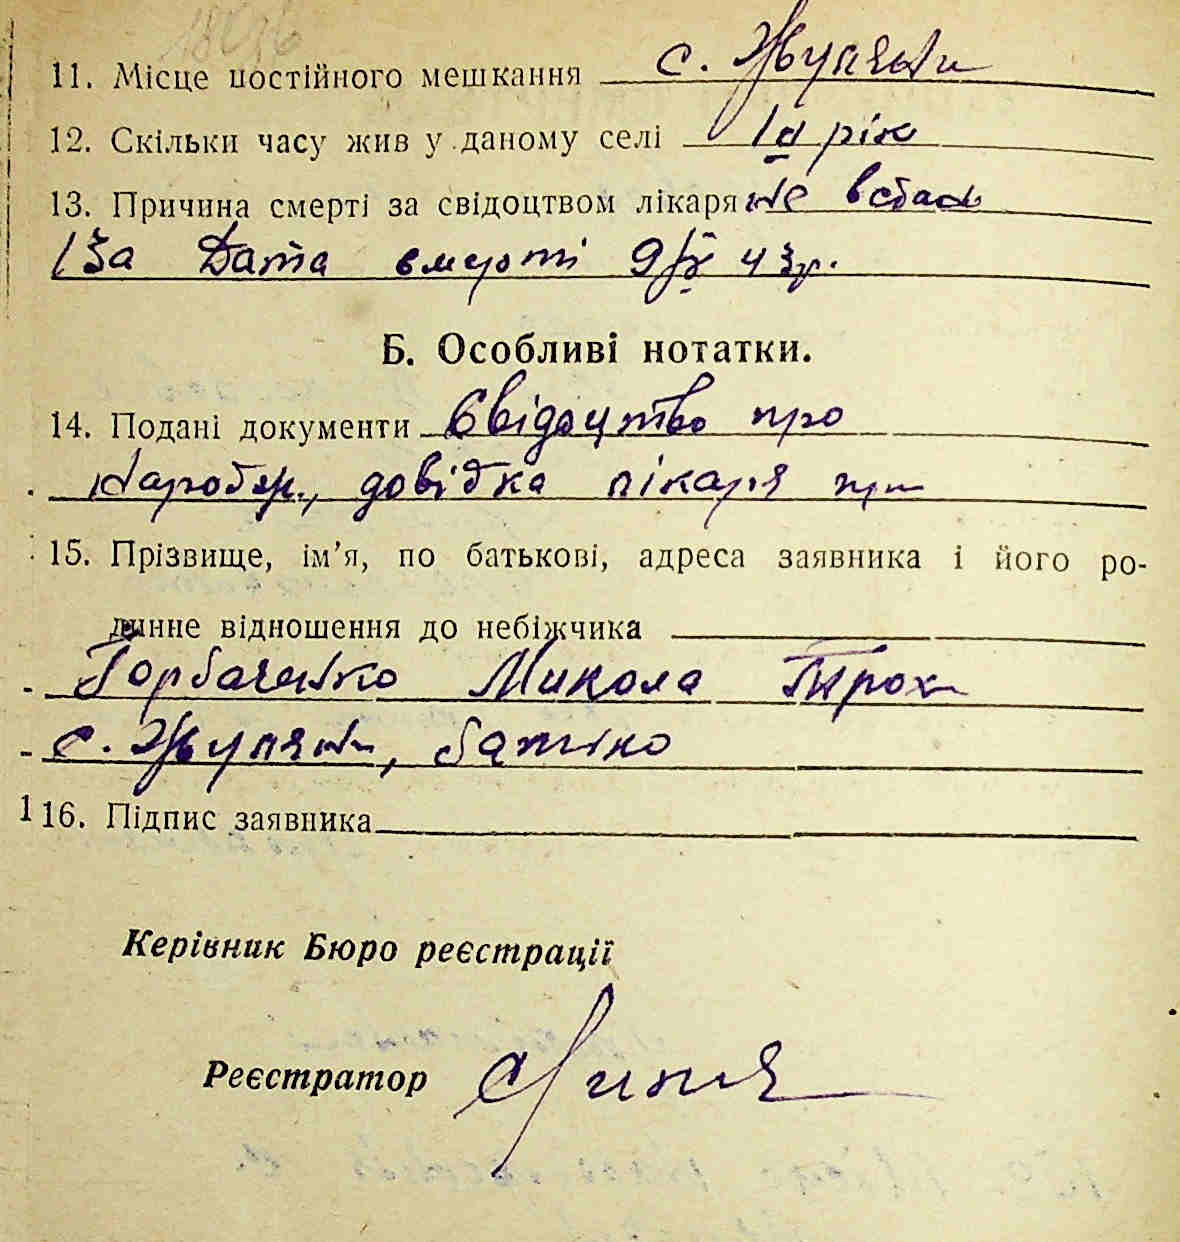 11. Місце постійного мешкання с. Жупяни
12. Скільки часу жив у даному селі рік
13. Причина смерті за свідоцтвом лікаря не
Дата смерті 9/X 43р.
Б. Особливі нотатки.
14. Подані документи Свідоцтво про
довідка лікаря
15. Прізвище, ім'я, по батькові, адреса заявника і його ро-
динне відношення до небіжчика
Горбаченко Микола Трох
с. Жупяни, батько
16. Підпис заявника
Керівник Бюро реєстрації
Реєстратор